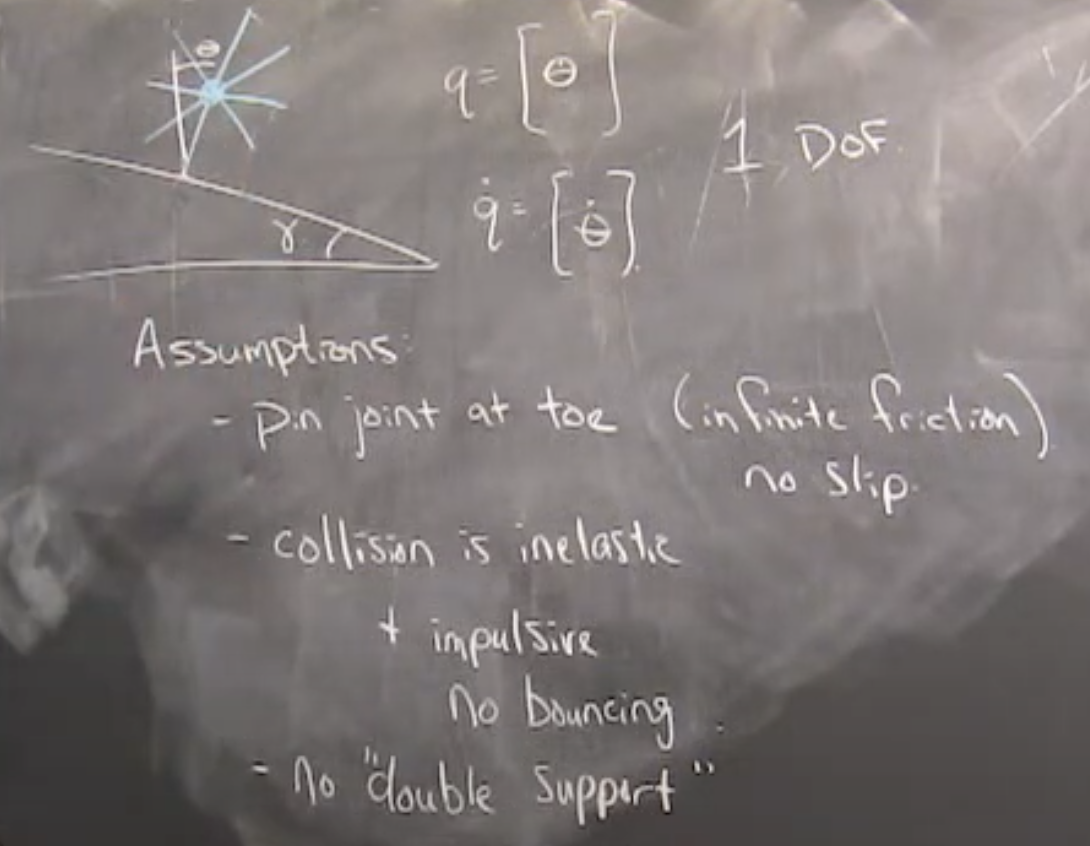 θ
q = [θ]
1 DOF.
q̇ = [θ̇].
γ
Assumptions:
- pin joint at toe (infinite friction)
no slip.
- collision is inelastic
+ impulsive
no bouncing
- no "double support"